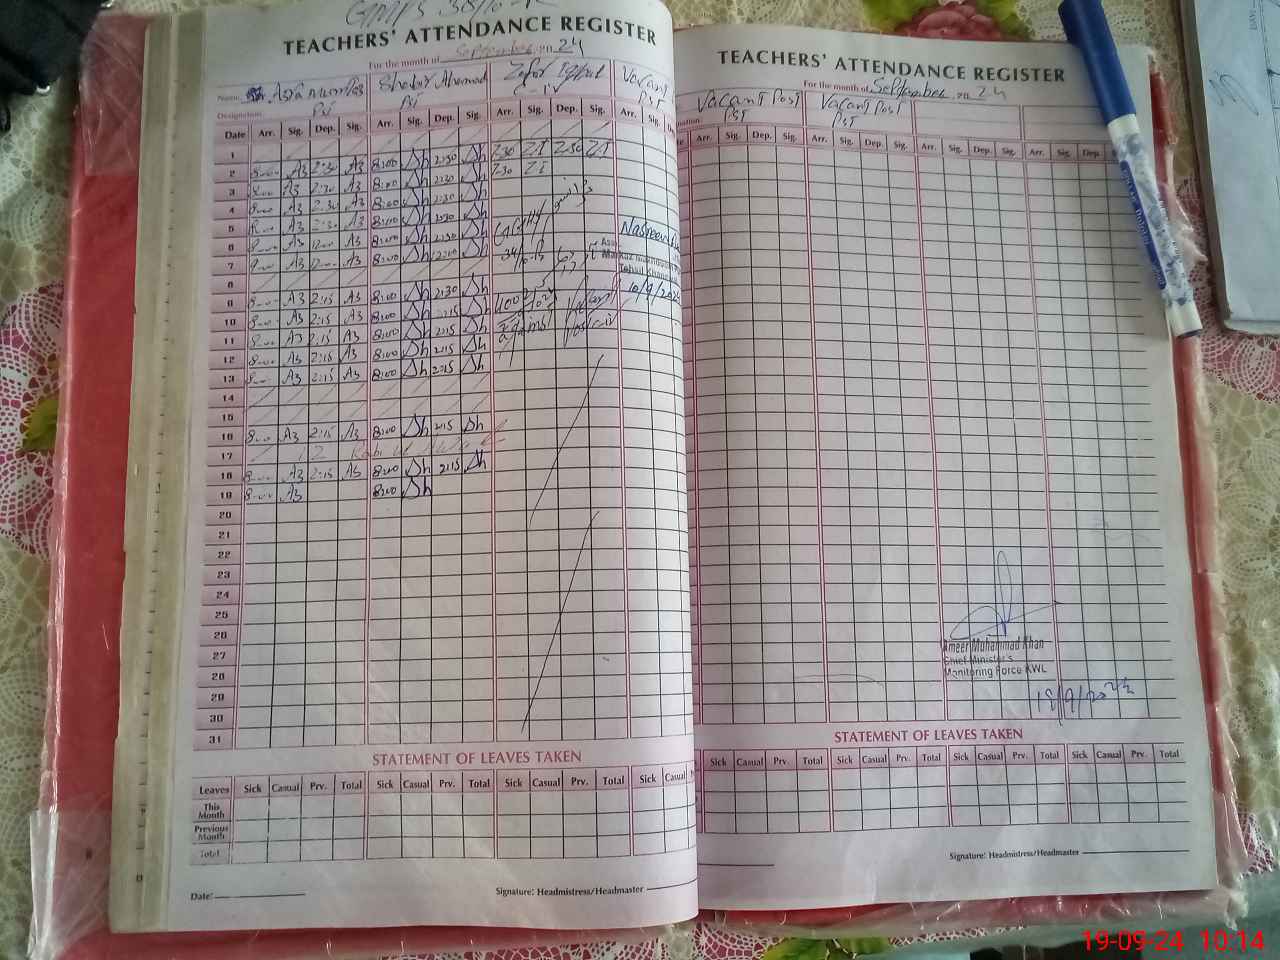 TEACHERS' ATTENDANCE REGISTER
For the month of September 24
Name: Shakur Ahmad Zafar Iqbal Vacant
Designation: PST C-IV PST
Date Arr. Sig. Dep. Sig. Arr. Sig. Dep. Sig. Arr. Sig. Dep. Sig. Arr. Sig.
1
2 8:00 A3 2:30 A3 8:00 Sh 2:30 Sh 7:30 Z.I 2:30 Z.I
3 8:00 A3 2:30 A3 8:00 Sh 2:30 Sh 7:30 Z.I
4 8:00 A3 2:30 A3 8:00 Sh 2:30 Sh
5 8:00 A3 2:30 A3 8:00 Sh 2:30 Sh
6 8:00 A3 12:00 A3 8:00 Sh 2:30 Sh
7 8:00 A3 12:00 A3 8:00 Sh 12:00 Sh
8
9 8:00 A3 2:15 A3 8:00 Sh 2:30 Sh
10 8:00 A3 2:15 A3 8:00 Sh 2:15 Sh
11 8:00 A3 2:15 A3 8:00 Sh 2:15 Sh
12 8:00 A3 2:15 A3 8:00 Sh 2:15 Sh
13 8:00 A3 2:15 A3 8:00 Sh 2:15 Sh
14
15
16 8:00 A3 2:15 A3 8:00 Sh 2:15 Sh
17 12 Rabi ul Awal
18 8:00 A3 2:15 A3 8:00 Sh 2:15 Sh
19 8:00 A3 8:00 Sh
20
21
22
23
24
25
26
27
28
29
30
31
Nasreen
10/9/202
STATEMENT OF LEAVES TAKEN
Leaves Sick Casual Prv. Total Sick Casual Prv. Total Sick Casual Prv. Total Sick Casual
This Month
Previous Month
Total
Date:
Signature: Headmistress/Headmaster
TEACHERS' ATTENDANCE REGISTER
For the month of September 24
Vacant Post Vacant Post
PST PST
Arr. Sig. Dep. Sig. Arr. Sig. Dep. Sig. Arr. Sig. Dep. Sig. Arr. Sig. Dep. Sig.
Ameer Muhammad Khan
Chief Minister's
Monitoring Force KWL
18/9/2024
STATEMENT OF LEAVES TAKEN
Sick Casual Prv. Total Sick Casual Prv. Total Sick Casual Prv. Total Sick Casual Prv. Total
Signature: Headmistress/Headmaster
19-09-24 10:14